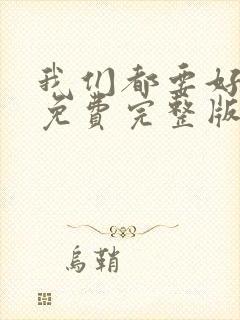 我们都要好
免费完整版
乌鞘